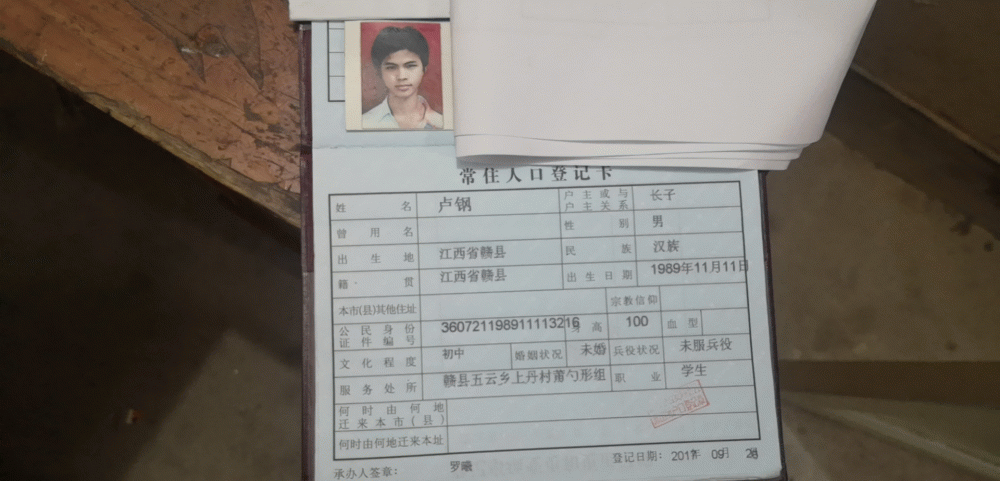 常住人口登记卡
姓名 卢钢 户主或与户主关系 长子
曾用名 性别 男
出生地 江西省赣县 民族 汉族
籍贯 江西省赣县 出生日期 1989年11月11日
本市(县)其他住址 宗教信仰
公民身份证件编号 360721198911113216 身高 100 血型
文化程度 初中 婚姻状况 未婚 兵役状况 未服兵役
服务处所 赣县五云乡上丹村莆勺形组 职业 学生
何时由何地迁来本市(县)
何时由何地迁来本址
承办人签章: 罗曦 登记日期: 年 09月